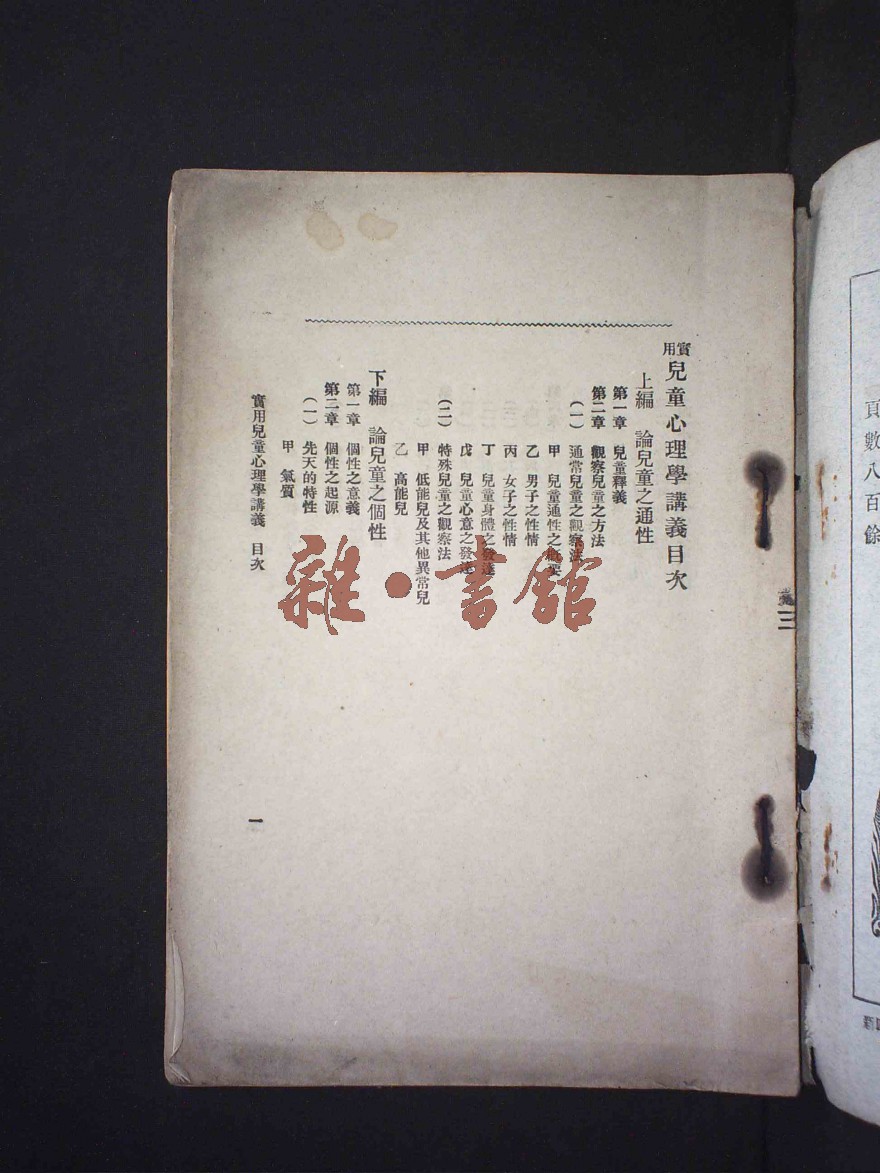 實用兒童心理學講義目次
上編　論兒童之通性
第一章　兒童釋義
第二章　觀察兒童之方法
（一）　通常兒童之觀察法
甲　兒童通性之概要
乙　男子之性情
丙　女子之性情
丁　兒童身體之發達
戊　兒童心意之發達
（二）　特殊兒童之觀察法
甲　低能兒及其他異常兒
乙　高能兒
下編　論兒童之個性
第一章　個性之意義
第二章　個性之起源
（一）　先天的特性
甲　氣質
實用兒童心理學講義　目次
一
雜·書館
頁數八百餘
三